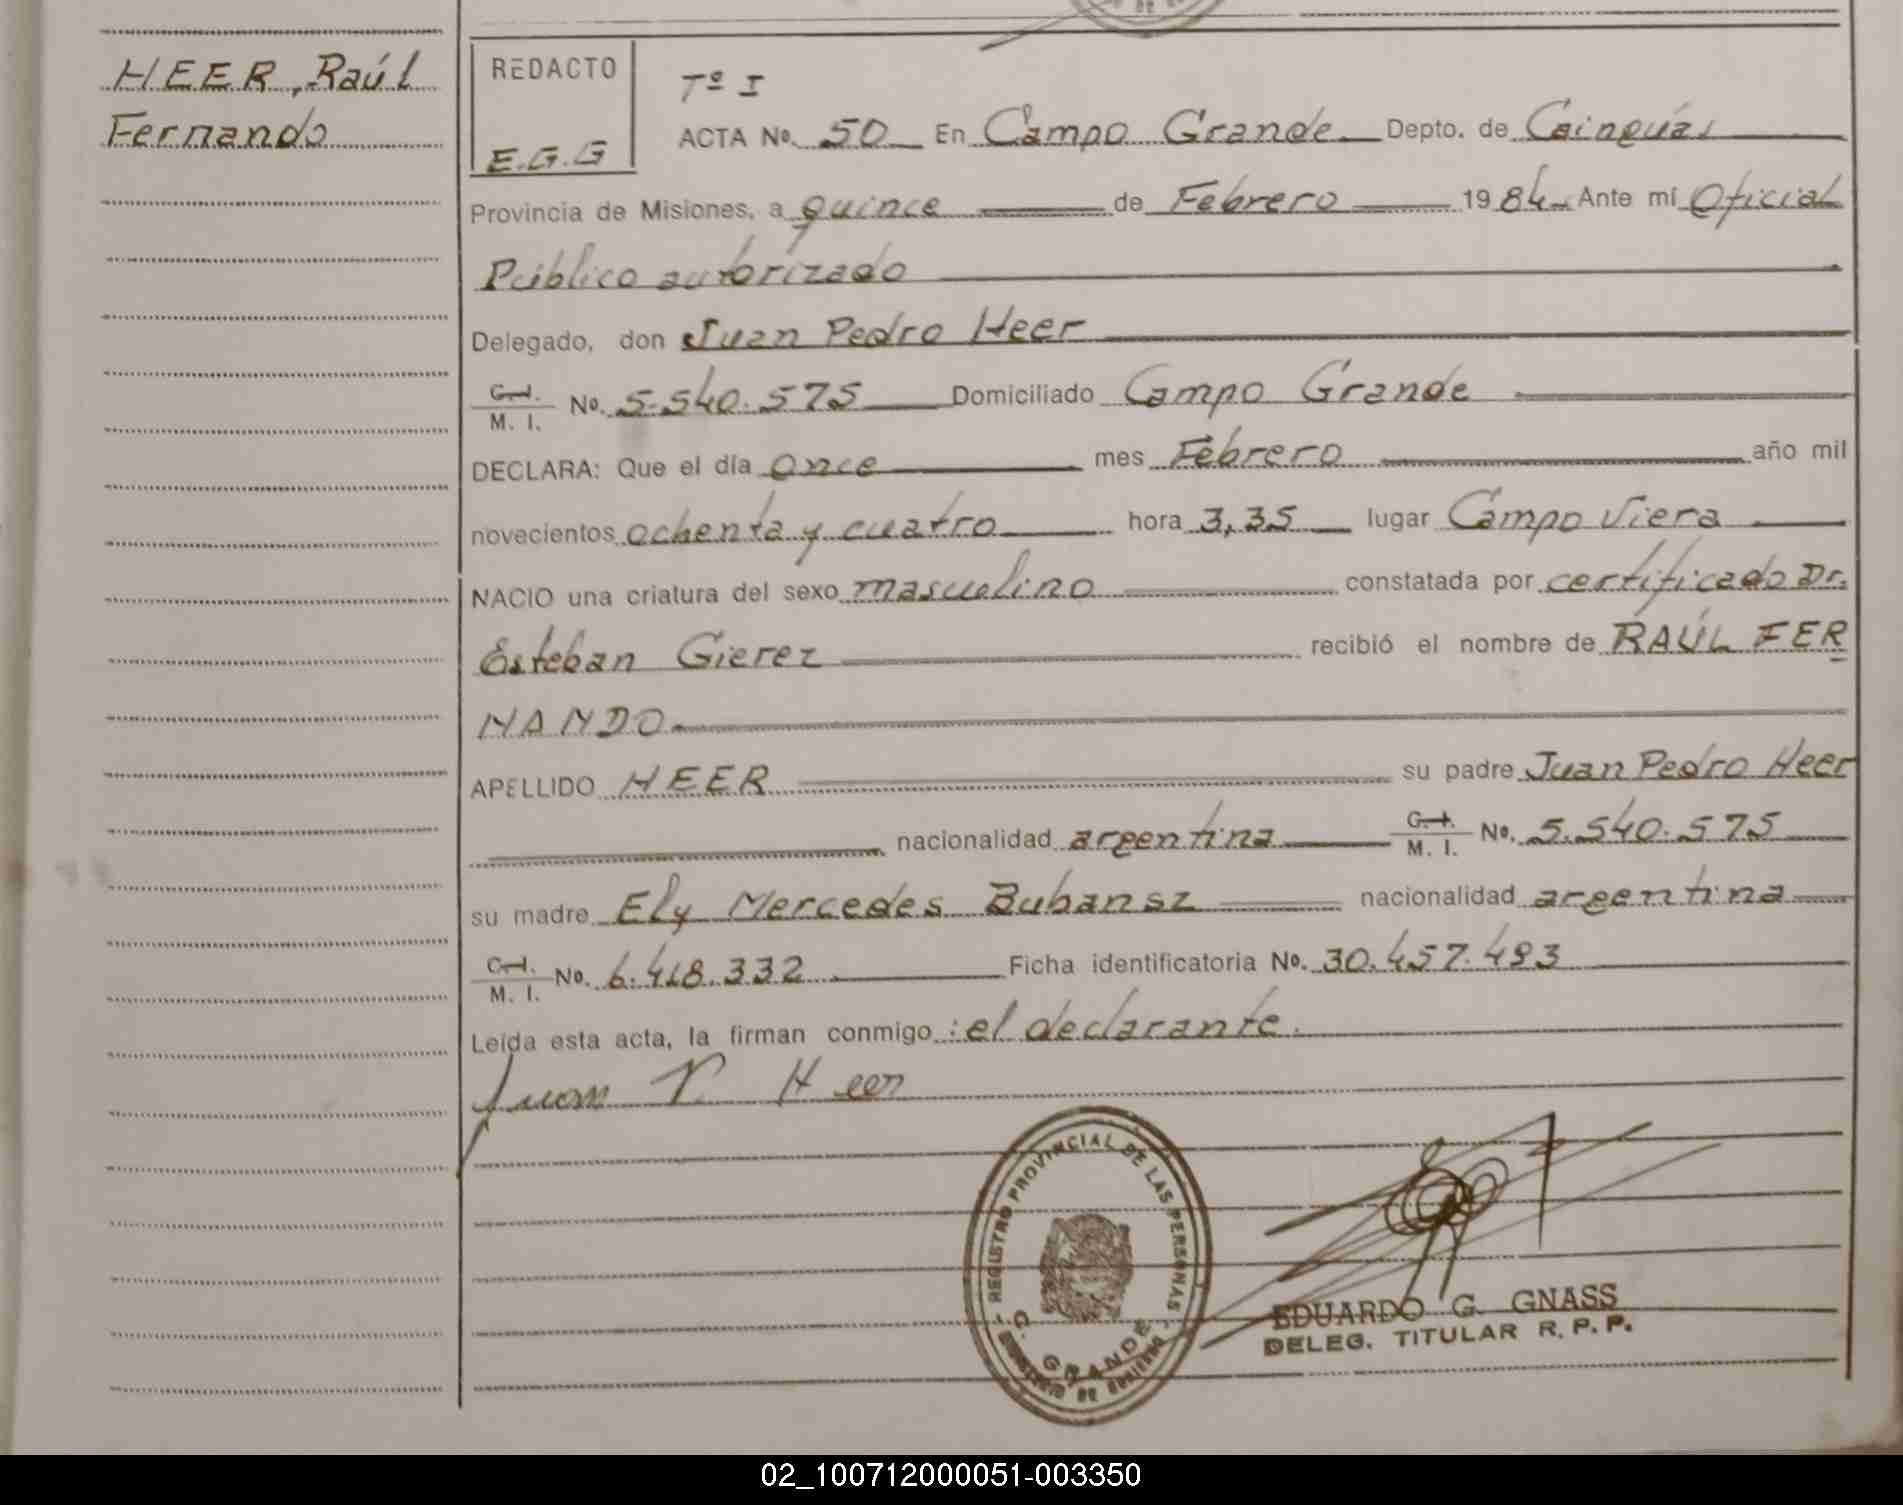 HEER, Raúl
Fernando
REDACTO
E.G.G
Tº I
ACTA Nº. 50 En Campo Grande Depto. de Cainguás
Provincia de Misiones, a quince de Febrero 1984 Ante mí Oficial
Público autorizado
Delegado, don Juan Pedro Heer
C.I.
M. I. Nº. 5.540.575 Domiciliado Campo Grande
DECLARA: Que el día once mes Febrero año mil
novecientos ochenta y cuatro hora 3,35 lugar Campo Viera
NACIO una criatura del sexo masculino constatada por certificado Dr.
Esteban Gierez recibió el nombre de RAÚL FER
NANDO
APELLIDO HEER su padre Juan Pedro Heer
nacionalidad argentina C.I. M. I. Nº. 5.540.575
su madre Ely Mercedes Bubansz nacionalidad argentina
C.I.
M. I. Nº. 6.418.332 Ficha identificatoria Nº. 30.457.493
Leída esta acta, la firman conmigo: el declarante.
Juan P. Heer
REGISTRO PROVINCIAL DE LAS PERSONAS
C. GRANDE
EDUARDO G. GNASS
DELEG. TITULAR R. P. P.
02_100712000051-003350